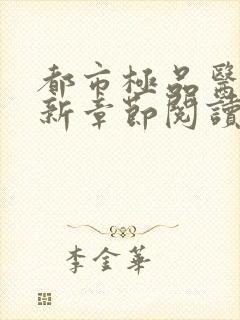 都市極品醫
新章節閱讀
李金華